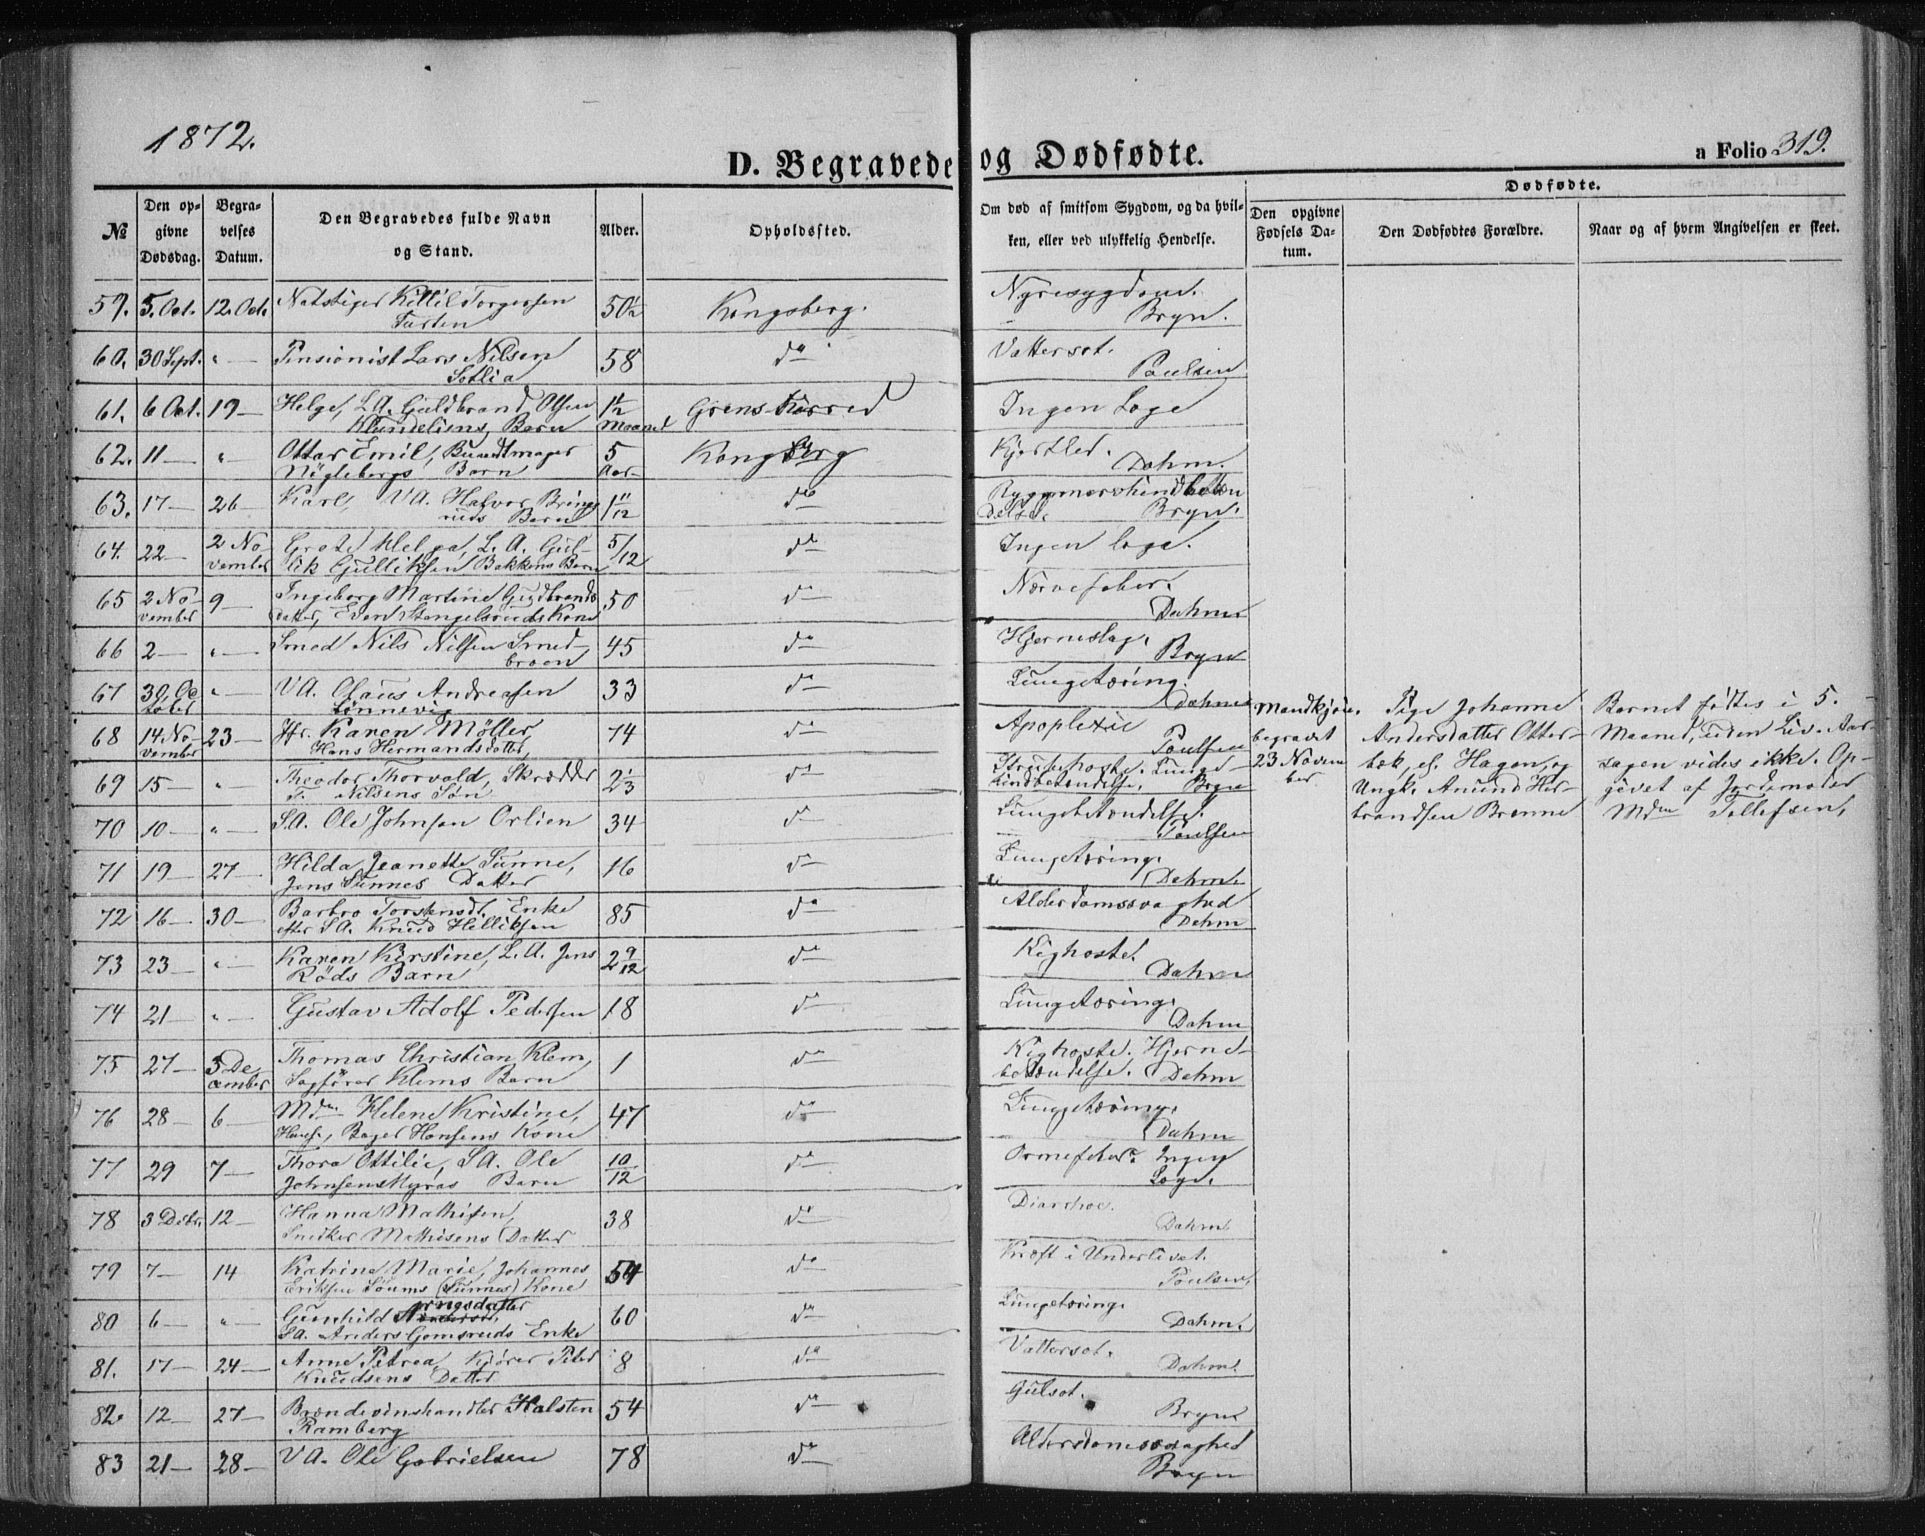 1872.
D. Begravede og Dødfødte.
a Folio 319.
№
Den opgivne Dødsdag.
Begravelses Datum.
Den Begravedes fulde Navn og Stand.
Alder.
Opholdssted.
Om død af smitsom Sygdom, og da hvilken, eller ved ulykkelig Hendelse.
Dødfødte.
Den opgivne Fødsels Datum.
Den Dødfødtes Forældre.
Naar og af hvem Angivelsen er skeet.
59. 5. Oct. 12. Oct. Natstiger Killil Torgersen 50½ Kongsberg. Nyresygdom.
Bryn.
60. 30 Sept. " — Pensionist Lars Nilsen 58 do Vattersot.
Sotlia Poulsen
61. 6 Oct. 19 — Helge, L.A. Guldbrand Olsen 1½ Maaned Grens-Kørred Ingen Læge
Barn
62. 11 — " Ottar Emil, Bundtmager 5 Aar Kongsberg Kjertler.
Nøglebergs Barn Dahm.
63. 17 — 26 — Karl, V.A. Halvor Brings- 1 11/12 do
ruds Barn Bryn.
64. 22 — 2 November Grete Helga, L.A. Gul- 5/12 do Ingen Læge.
lik Gulliksen Bakkens Barn
65 2 November 9 — Ingeborg Martine Guldbrands- 50 do Nervefeber.
datter, Even Stengelsruds Kone Dahm
66 2 — " — Smed Nils Nilsen Smed- 45 do Hjerneslag.
broen Bryn
67 30 October " — V.A. Olaus Andreasen 33 do Lungetæring.
Lønnevig Dahm
68 14 November 23 — Jfr. Karen Møller 74 do Apoplexie
Hans Hermandsdatter, Poulsen
69 15 — " — Theodor Thorvald, Skrædder 2⅓ do Strubehoste. Lunge-
T. Nilsens Søn Bryn
70 10 — " — S.A. Ole Johnsen Orlien 34 do Lungebetændelse.
Poulsen
71 19 — 27 — Hilda Jeanette Sunne, 16 do Lungetæring.
Jens Sunnes Datter Dahm.
72 16 — 30 — Barbro Torstensdt. Enke 85 do Alderdomssvaghed
efter S.A. Knud Helliksen Dahm
73 23 — " — Karen Kirstine, L.A. Jens 2 9/12 do Kighoste.
Røds Barn Dahm
74 21 — " — Gustav Adolf Pedersen 18 do Lungetæring.
Dahm
75 27 — 5 December Thomas Christian Klem, 1 do Kighoste. Hjerne-
Sagfører Klems Barn betændelse. Dahm
76 28 — 6 — Mdm Helene Kristine, 47 do Lungetæring.
Bager Hansens Kone Dahm
77 29 7 — Thora Ottilie, S.A. Ole 10/12 do Ormefeber. Ingen
Johnsens Myras Barn Læge.
78 3 Debr. 12 — Hanna Mathisen, 38 do Diarrhoe.
Snedker Mathisens Datter Dahm
79 7 — 14 Katrine Marie, Johannes 54 do Kræft i Underlivet.
Eriksen Søums (Sunnes) Kone Poulsen
80 6 — " — Gunhild Arnesdatter 60 do Lungetæring.
S.A. Anders Gomsruds Enke Dahm.
81. 17 — 24 — Anne Petrea, Kjører Peter 8 do Vattersot.
Knudsens Datter Dahm.
82. 12 — 27 — Brændevinshandler Halsten 54 do Gulsot.
Ramberg Bryn
83 21 — 28 — V.A. Ole Gabrielsen 78 do Alderdomssvaghed
Bryn
Mandkjøn.
begravet
23 Novem
ber
Pige Johanne
Andersdatter Otter-
bæk, el. Hagen, og
Ungk. Amund Hel-
brandsen Brønne
Barnet føtes i 5.
Maaned, uden Liv. Aar-
sagen vides ikke. Op-
givet af Jordemoder
Mdm Tollefsen,